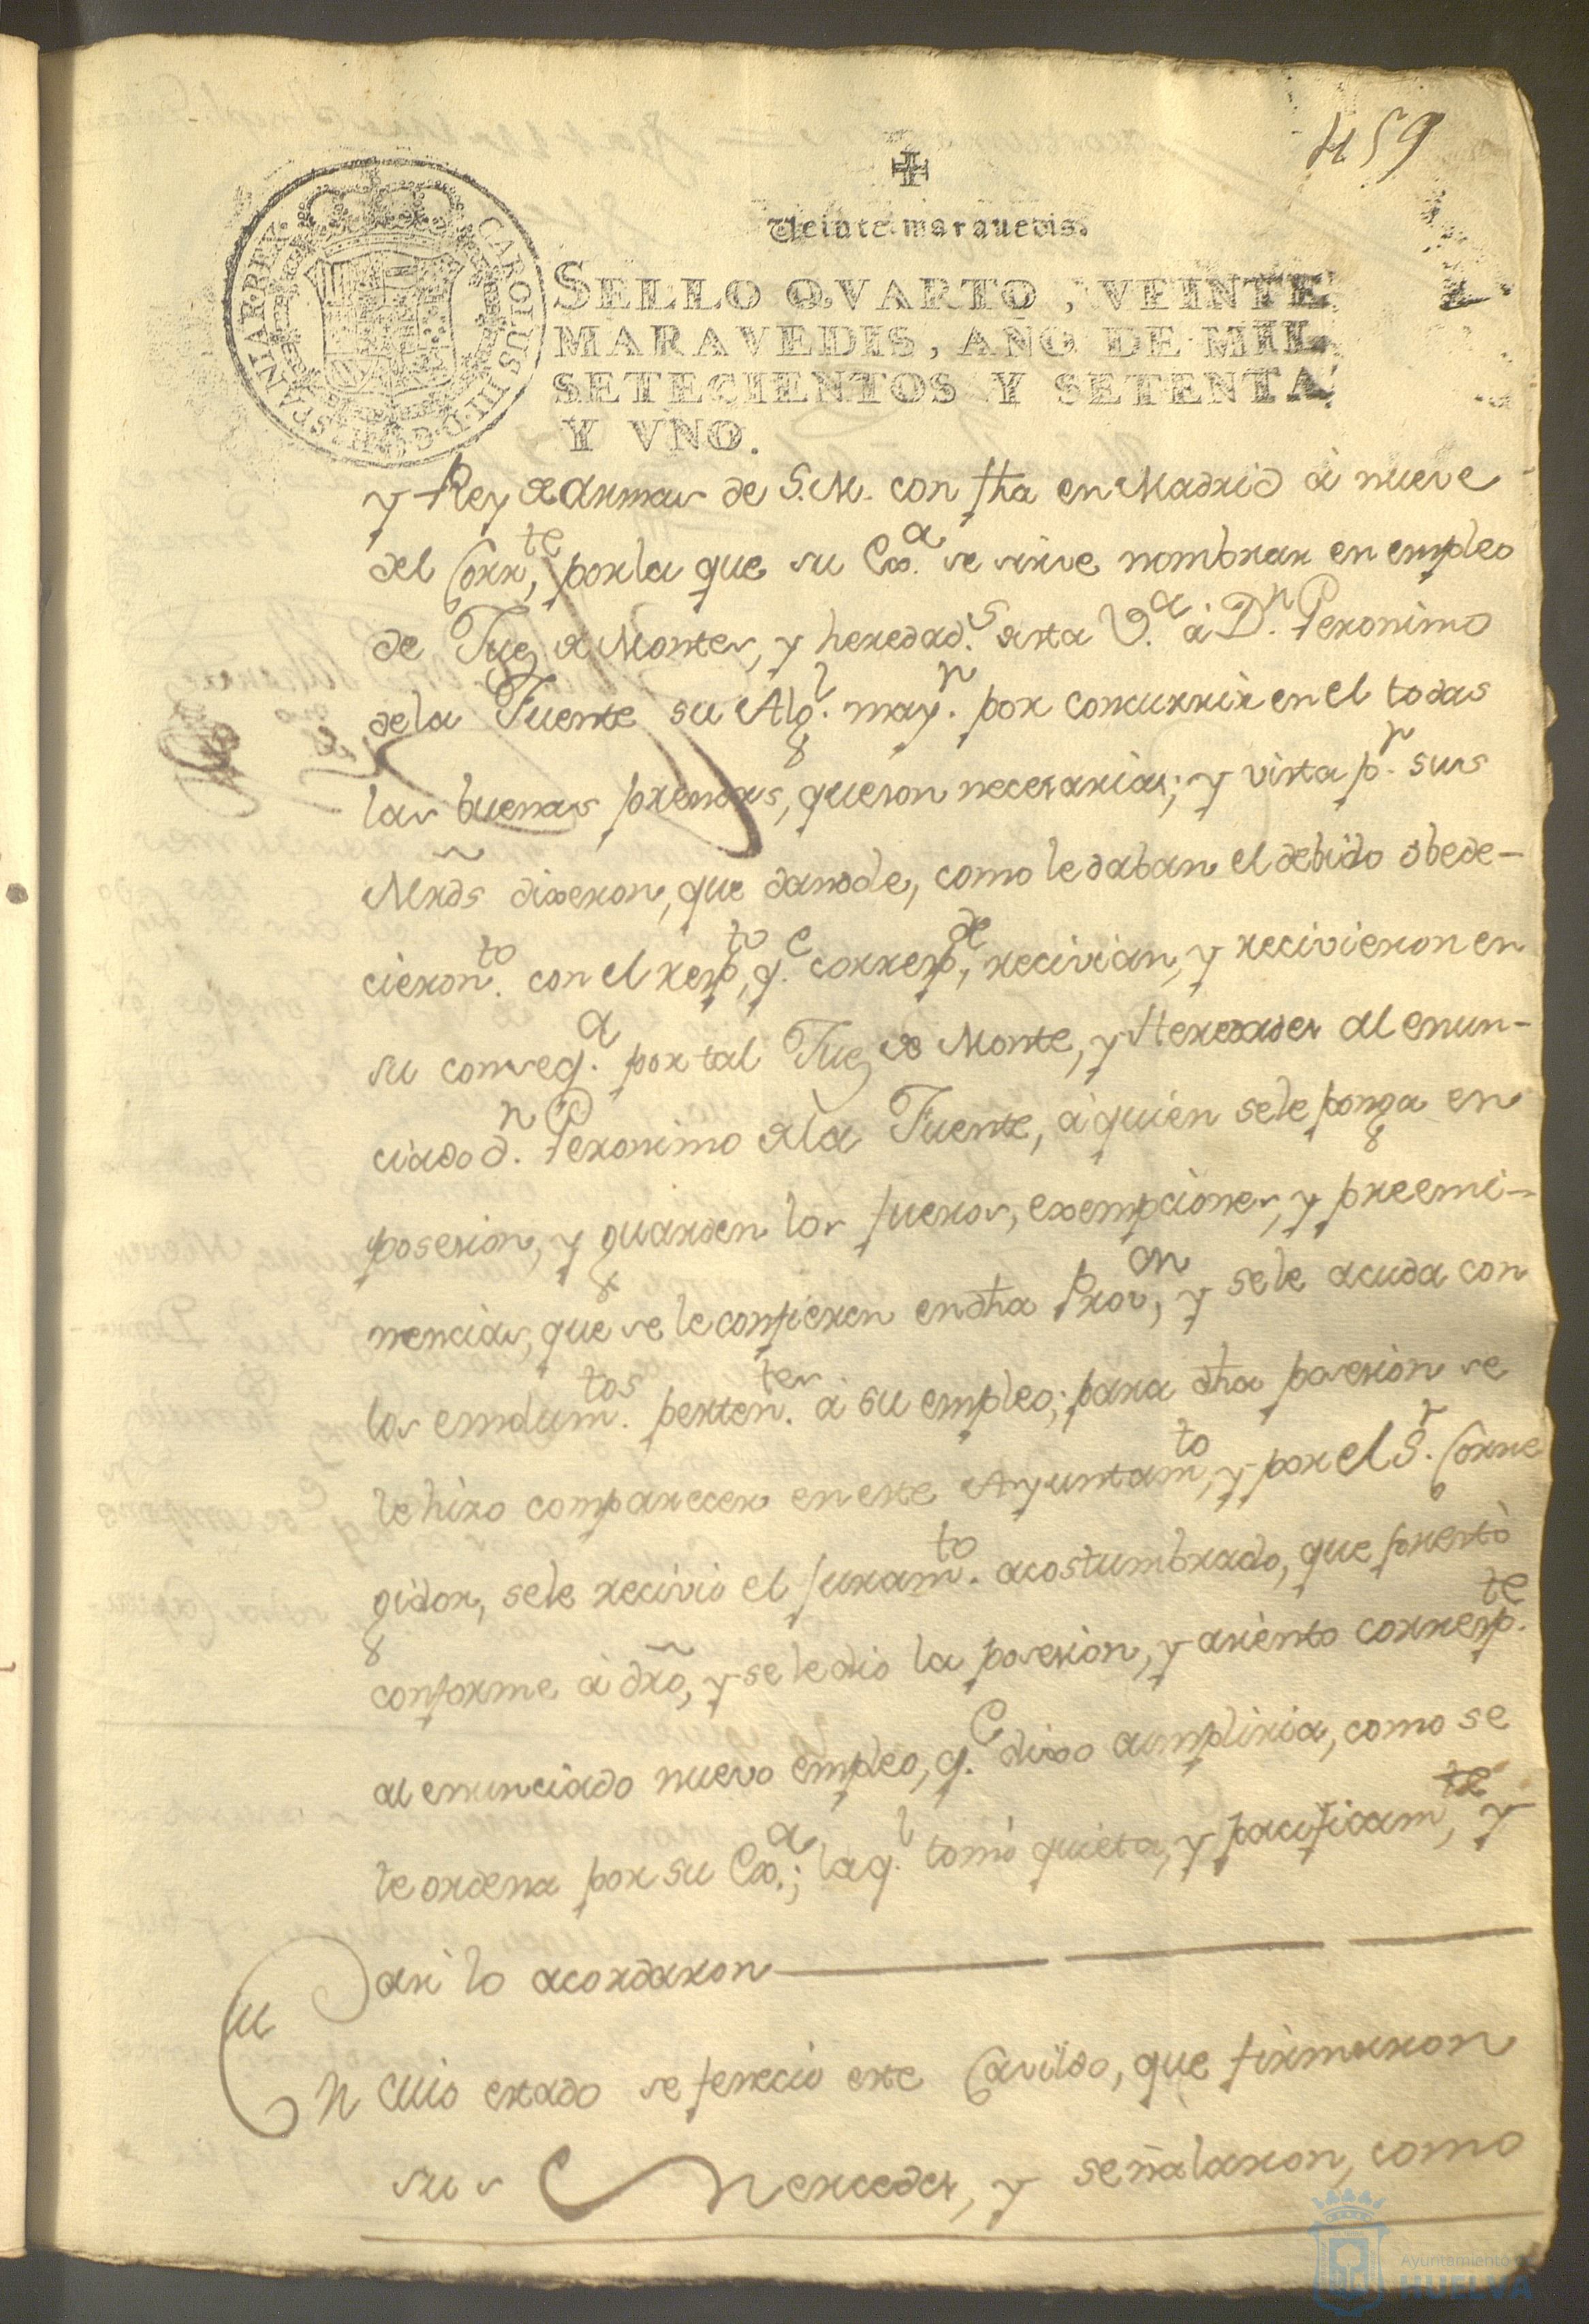 459
Veinte maravedis.
SELLO QVARTO, VEINTE
MARAVEDIS, AÑO DE MIL
SETECIENTOS Y SETENTA
Y VNO.
CAROLUS III D G HISPANIAR REX
y Rey de Armas de S.M. con fha en Madrid à nueve
del Corrte, por la que su Exa. se sirve nombrar en empleo
de Juez de Montes, y heredads. de esta Va. à Dn. Geronimo
de la Fuente su Algl. mayr. por concurrir en el todas
las buenas prendas, que son necesarias; y vista pr. sus
Mrds dixeron, que dandole, como le daban el debido obede-
cieronto. con el respto, qe. correspde, recivian, y recivieron en
su conseqa. por tal Juez de Monte, y Heredades al enun-
ciado dn. Geronimo de la Fuente, à quien se le ponga en
posesion, y guarden los fueros, exempciones, y preemi-
nencias, que se le confieren en dha Provon, y se le acuda con
los emolumtos. pertentes. à su empleo; para dha posesion se
le hizo comparecer en este Ayuntamto, y por el Sr. Corre
gidor, se le recivio el Juramto. acostumbrado, que prestò
conforme à dro, y se le dio la posesion, y asiento correspte.
al enunciado nuevo empleo, qe. dixo cumpliria, como se
le ordena por su Exa.; la ql. tomò quieta, y pacificamte, y
asi lo acordaron
En cuio estado se fenecio este Cavildo, que firmaron
sus Mercedes, y señalaron, como
Ayuntamiento de
HUELVA